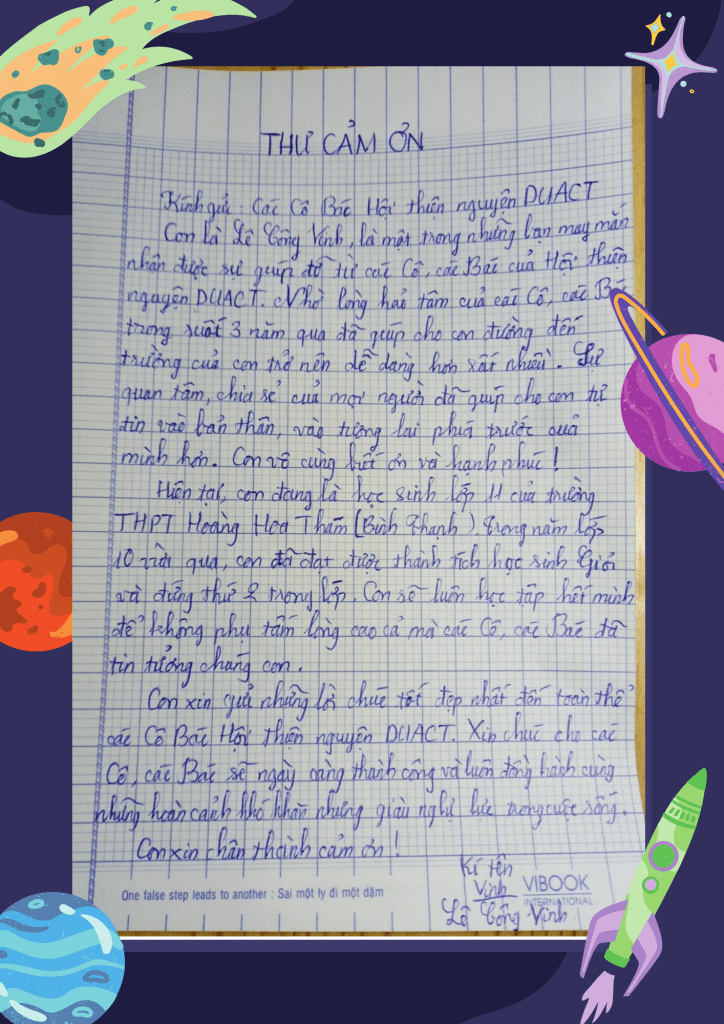 THƯ CẢM ƠN
Kính gửi : Các Cô Bác Hội thiện nguyện DUACT
Con là Lê Công Vinh, là một trong những bạn may mắn
nhận được sự giúp đỡ từ các Cô, các Bác của Hội thiện
nguyện DUACT. Nhờ lòng hảo tâm của các Cô, các Bác
trong suốt 3 năm qua đã giúp cho con đường đến
trường của con trở nên dễ dàng hơn rất nhiều. Sự
quan tâm, chia sẻ của mọi người đã giúp cho con tự
tin vào bản thân, vào tương lai phía trước của
mình hơn. Con vô cùng biết ơn và hạnh phúc !
Hiện tại, con đang là học sinh lớp 11 của trường
THPT Hoàng Hoa Thám (Bình Thạnh). Trong năm lớp
10 vừa qua, con đã đạt được thành tích học sinh Giỏi
và đứng thứ 2 trong lớp. Con sẽ luôn học tập hết mình
để không phụ tấm lòng cao cả mà các Cô, các Bác đã
tin tưởng chúng con.
Con xin gửi những lời chúc tốt đẹp nhất đến toàn thể
các Cô Bác Hội thiện nguyện DUACT. Xin chúc cho các
Cô, các Bác sẽ ngày càng thành công và luôn đồng hành cùng
những hoàn cảnh khó khăn nhưng giàu nghị lực trong cuộc sống.
Con xin chân thành cảm ơn !
Kí tên
Vinh
Lê Công Vinh
One false step leads to another : Sai một ly đi một dặm
VIBOOK
INTERNATIONAL